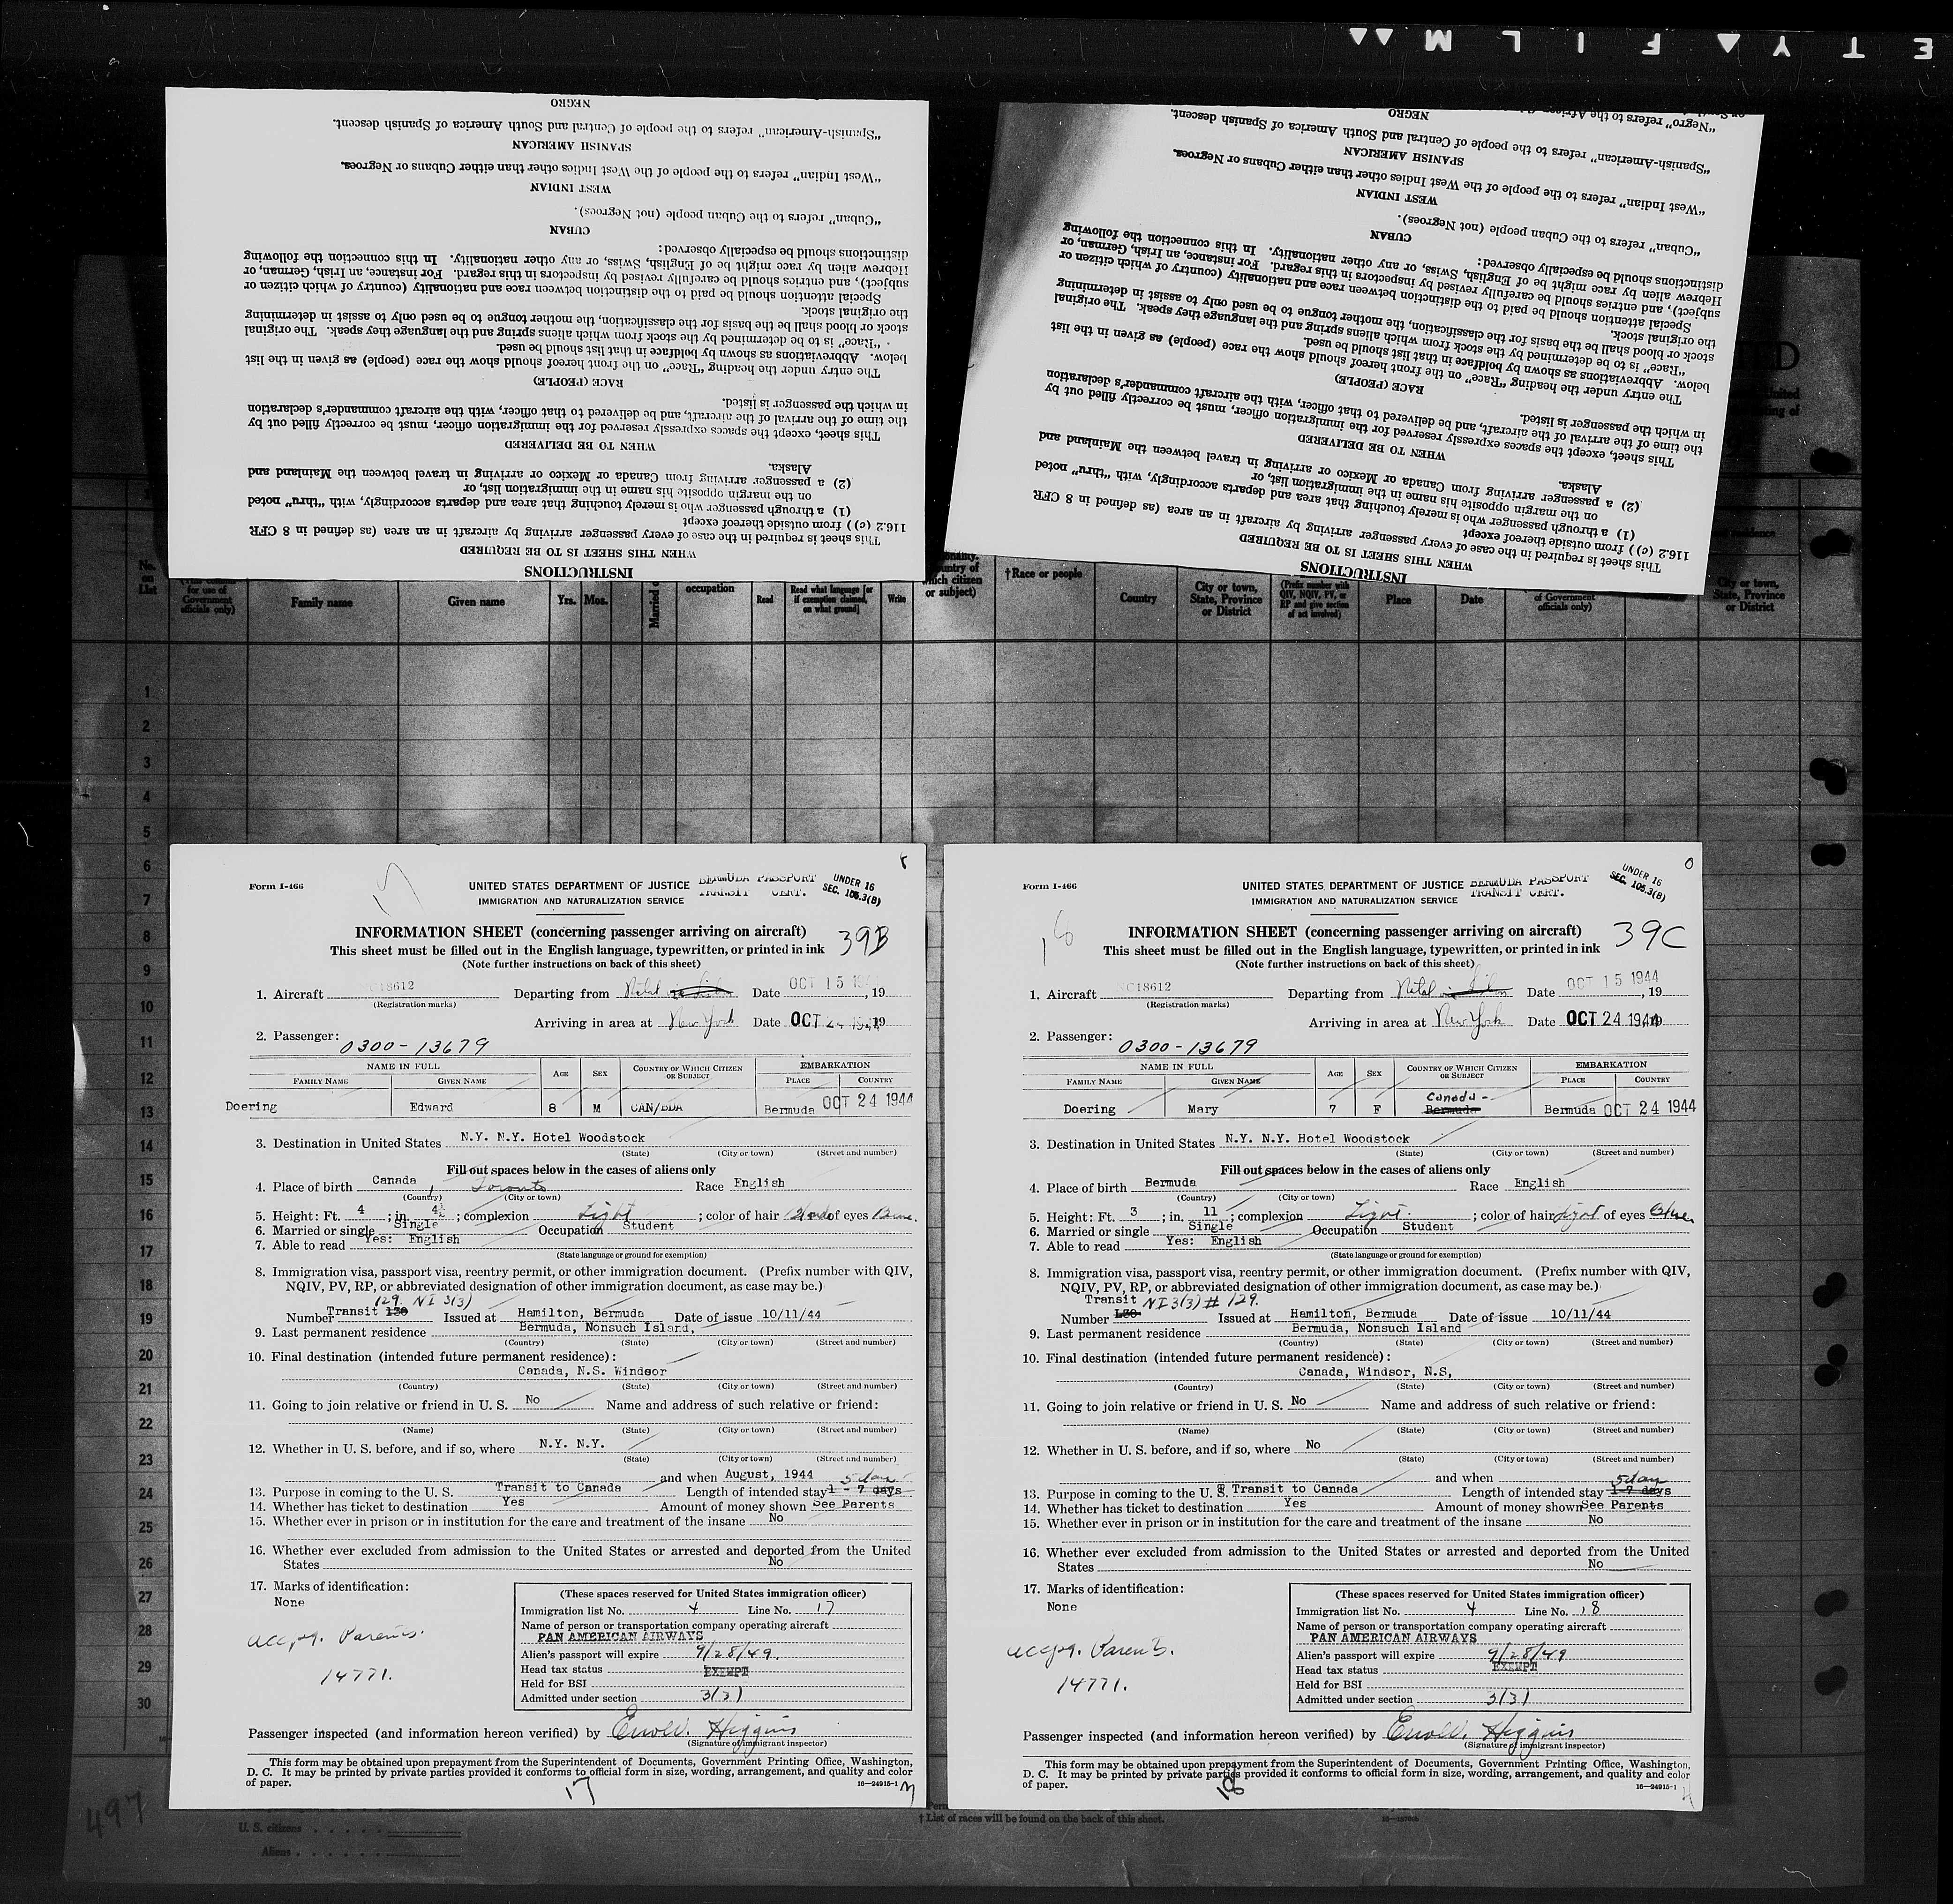 E T Y ▲ F I L M ▲▲
INSTRUCTIONS
WHEN THIS SHEET IS TO BE REQUIRED
This sheet is required in the case of every passenger arriving by aircraft in an area (as defined in 8 CFR
116.2 (c)) from outside thereof except
(1) a through passenger who is merely touching that area and departs accordingly, with "thru" noted
on the margin opposite his name in the immigration list, or
(2) a passenger arriving from Canada or Mexico or arriving in travel between the Mainland and
Alaska.
WHEN TO BE DELIVERED
This sheet, except the spaces expressly reserved for the immigration officer, must be correctly filled out by
the time of the arrival of the aircraft, and be delivered to that officer, with the aircraft commander's declaration
in which the passenger is listed.
RACE (PEOPLE)
The entry under the heading "Race" on the front hereof should show the race (people) as given in the list
below. Abbreviations as shown by boldface in that list should be used.
"Race" is to be determined by the stock from which aliens spring and the language they speak. The original
stock or blood shall be the basis for the classification, the mother tongue to be used only to assist in determining
the original stock.
Special attention should be paid to the distinction between race and nationality (country of which citizen or
subject), and entries should be carefully revised by inspectors in this regard. For instance, an Irish, German, or
Hebrew alien by race might be of English, Swiss, or any other nationality. In this connection the following
distinctions should be especially observed:
CUBAN
"Cuban" refers to the Cuban people (not Negroes).
WEST INDIAN
"West Indian" refers to the people of the West Indies other than either Cubans or Negroes.
SPANISH AMERICAN
"Spanish-American" refers to the people of Central and South America of Spanish descent.
NEGRO
INSTRUCTIONS
WHEN THIS SHEET IS TO BE REQUIRED
This sheet is required in the case of every passenger arriving by aircraft in an area (as defined in 8 CFR
116.2 (c)) from outside thereof except
(1) a through passenger who is merely touching that area and departs accordingly, with "thru" noted
on the margin opposite his name in the immigration list, or
(2) a passenger arriving from Canada or Mexico or arriving in travel between the Mainland and
Alaska.
WHEN TO BE DELIVERED
This sheet, except the spaces expressly reserved for the immigration officer, must be correctly filled out by
the time of the arrival of the aircraft, and be delivered to that officer, with the aircraft commander's declaration
in which the passenger is listed.
RACE (PEOPLE)
The entry under the heading "Race" on the front hereof should show the race (people) as given in the list
below. Abbreviations as shown by boldface in that list should be used.
"Race" is to be determined by the stock from which aliens spring and the language they speak. The original
stock or blood shall be the basis for the classification, the mother tongue to be used only to assist in determining
the original stock.
Special attention should be paid to the distinction between race and nationality (country of which citizen or
subject), and entries should be carefully revised by inspectors in this regard. For instance, an Irish, German, or
Hebrew alien by race might be of English, Swiss, or any other nationality. In this connection the following
distinctions should be especially observed:
CUBAN
"Cuban" refers to the Cuban people (not Negroes).
WEST INDIAN
"West Indian" refers to the people of the West Indies other than either Cubans or Negroes.
SPANISH AMERICAN
"Spanish-American" refers to the people of Central and South America of Spanish descent.
NEGRO
"Negro" refers to the
No. on List
for use of Government officials only)
Family name
Given name
Yrs. Mos.
occupation
Read
Read what language [or if exemption claimed, on what ground]
Write
country of which citizen or subject)
†Race or people
Country
City or town, State, Province or District
(Prefix number with QIV, NQIV, PV, or RP and give section of act involved)
Place
Date
of Government officials only)
City or town, State, Province or District
1
2
3
4
5
6
7
8
9
10
11
12
13
14
15
16
17
18
19
20
21
22
23
24
25
26
27
28
29
30
Form I-466
UNITED STATES DEPARTMENT OF JUSTICE
IMMIGRATION AND NATURALIZATION SERVICE
BERMUDA PASSPORT
TRANSIT CERT.
UNDER 16
SEC. 105.3(B)
INFORMATION SHEET (concerning passenger arriving on aircraft)
39B
This sheet must be filled out in the English language, typewritten, or printed in ink
(Note further instructions on back of this sheet)
1. Aircraft NC18612 Departing from Natal Date OCT 15 19 , 19
(Registration marks)
Arriving in area at New York Date OCT 24 1944, 19
2. Passenger: 0300-13679
NAME IN FULL AGE SEX COUNTRY OF WHICH CITIZEN OR SUBJECT EMBARKATION
FAMILY NAME GIVEN NAME PLACE COUNTRY
Doering Edward 8 M CAN/BDA Bermuda OCT 24 1944
3. Destination in United States N.Y. N.Y. Hotel Woodstock
(State) (City or town) (Street and number)
Fill out spaces below in the cases of aliens only
4. Place of birth Canada, Toronto Race English
(Country) (City or town)
5. Height: Ft. 4 ; in. 4½ ; complexion Light ; color of hair Blond of eyes Blue.
6. Married or single Single Occupation Student
7. Able to read Yes: English
(State language or ground for exemption)
8. Immigration visa, passport visa, reentry permit, or other immigration document. (Prefix number with QIV,
NQIV, PV, RP, or abbreviated designation of other immigration document, as case may be.)
129. NI 3(3)
Number Transit 130 Issued at Hamilton, Bermuda Date of issue 10/11/44
9. Last permanent residence Bermuda, Nonsuch Island,
(Country) (State) (City or town) (Street and number)
10. Final destination (intended future permanent residence):
Canada, N.S. Windsor
(Country) (State) (City or town) (Street and number)
11. Going to join relative or friend in U. S. No Name and address of such relative or friend:
(Name) (State) (City or town) (Street and number)
12. Whether in U. S. before, and if so, where N.Y. N.Y.
(State) (City or town) (Street and number)
and when August, 1944
5 day
13. Purpose in coming to the U. S. Transit to Canada Length of intended stay 1 - 7 days
14. Whether has ticket to destination Yes Amount of money shown See Parents
15. Whether ever in prison or in institution for the care and treatment of the insane No
16. Whether ever excluded from admission to the United States or arrested and deported from the United
States No
17. Marks of identification:
None
accpg. Parents.
14771.
(These spaces reserved for United States immigration officer)
Immigration list No. 4 Line No. 17
Name of person or transportation company operating aircraft
PAN AMERICAN AIRWAYS
Alien's passport will expire 9/28/49.
Head tax status EXEMPT
Held for BSI
Admitted under section 3(3)
Passenger inspected (and information hereon verified) by Higgins
(Signature of immigrant inspector)
This form may be obtained upon prepayment from the Superintendent of Documents, Government Printing Office, Washington,
D. C. It may be printed by private parties provided it conforms to official form in size, wording, arrangement, and quality and color
of paper. 16—24915-1
17
Form I-466
UNITED STATES DEPARTMENT OF JUSTICE
IMMIGRATION AND NATURALIZATION SERVICE
BERMUDA PASSPORT
TRANSIT CERT.
UNDER 16
SEC. 105.3(B)
INFORMATION SHEET (concerning passenger arriving on aircraft)
39C
This sheet must be filled out in the English language, typewritten, or printed in ink
(Note further instructions on back of this sheet)
1. Aircraft NC18612 Departing from Natal Date OCT 15 1944, 19
(Registration marks)
Arriving in area at New York Date OCT 24 1944
2. Passenger: 0300-13679
NAME IN FULL AGE SEX COUNTRY OF WHICH CITIZEN OR SUBJECT EMBARKATION
FAMILY NAME GIVEN NAME PLACE COUNTRY
Canada -
Doering Mary 7 F Bermuda Bermuda OCT 24 1944
3. Destination in United States N.Y. N.Y. Hotel Woodstock
(State) (City or town) (Street and number)
Fill out spaces below in the cases of aliens only
4. Place of birth Bermuda Race English
(Country) (City or town)
5. Height: Ft. 3 ; in. 11 ; complexion Light. ; color of hair light of eyes Blue.
6. Married or single Single Occupation Student
7. Able to read Yes: English
(State language or ground for exemption)
8. Immigration visa, passport visa, reentry permit, or other immigration document. (Prefix number with QIV,
NQIV, PV, RP, or abbreviated designation of other immigration document, as case may be.)
Transit NI 3(3) # 129.
Number 130 Issued at Hamilton, Bermuda Date of issue 10/11/44
9. Last permanent residence Bermuda, Nonsuch Island
(Country) (State) (City or town) (Street and number)
10. Final destination (intended future permanent residence):
Canada, Windsor, N.S,
(Country) (State) (City or town) (Street and number)
11. Going to join relative or friend in U. S. No Name and address of such relative or friend:
(Name) (State) (City or town) (Street and number)
12. Whether in U. S. before, and if so, where No
(State) (City or town) (Street and number)
and when
5 day
13. Purpose in coming to the U. S. Transit to Canada Length of intended stay 1-7 days
14. Whether has ticket to destination Yes Amount of money shown See Parents
15. Whether ever in prison or in institution for the care and treatment of the insane No
16. Whether ever excluded from admission to the United States or arrested and deported from the United
States No
17. Marks of identification:
None
accpg. Parents.
14771.
(These spaces reserved for United States immigration officer)
Immigration list No. 4 Line No. 18
Name of person or transportation company operating aircraft
PAN AMERICAN AIRWAYS
Alien's passport will expire 9/28/49
Head tax status EXEMPT
Held for BSI
Admitted under section 3(3)
Passenger inspected (and information hereon verified) by Higgins
(Signature of immigrant inspector)
This form may be obtained upon prepayment from the Superintendent of Documents, Government Printing Office, Washington,
D. C. It may be printed by private parties provided it conforms to official form in size, wording, arrangement, and quality and color
of paper. 16—24915-1
18
497
U. S. citizens
Aliens
† List of races will be found on the back of this sheet.